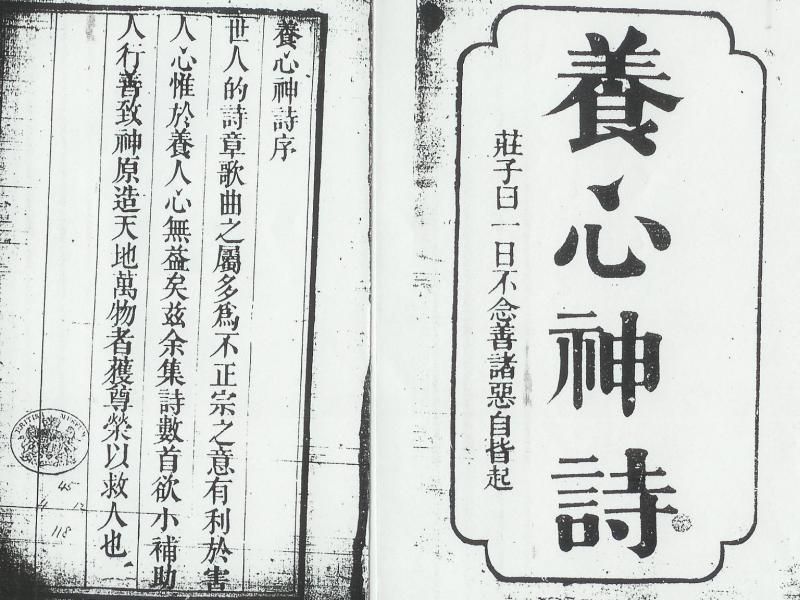 養心神詩
莊子曰一日不念善諸惡自皆起
養心神詩序
世人的詩章歌曲之屬多為不正宗之意有利於害
人心惟於養人心無益矣茲余集詩數首欲小補助
人行善致神原造天地萬物者獲尊榮以救人也
BRITISH MUSEUM
45
118